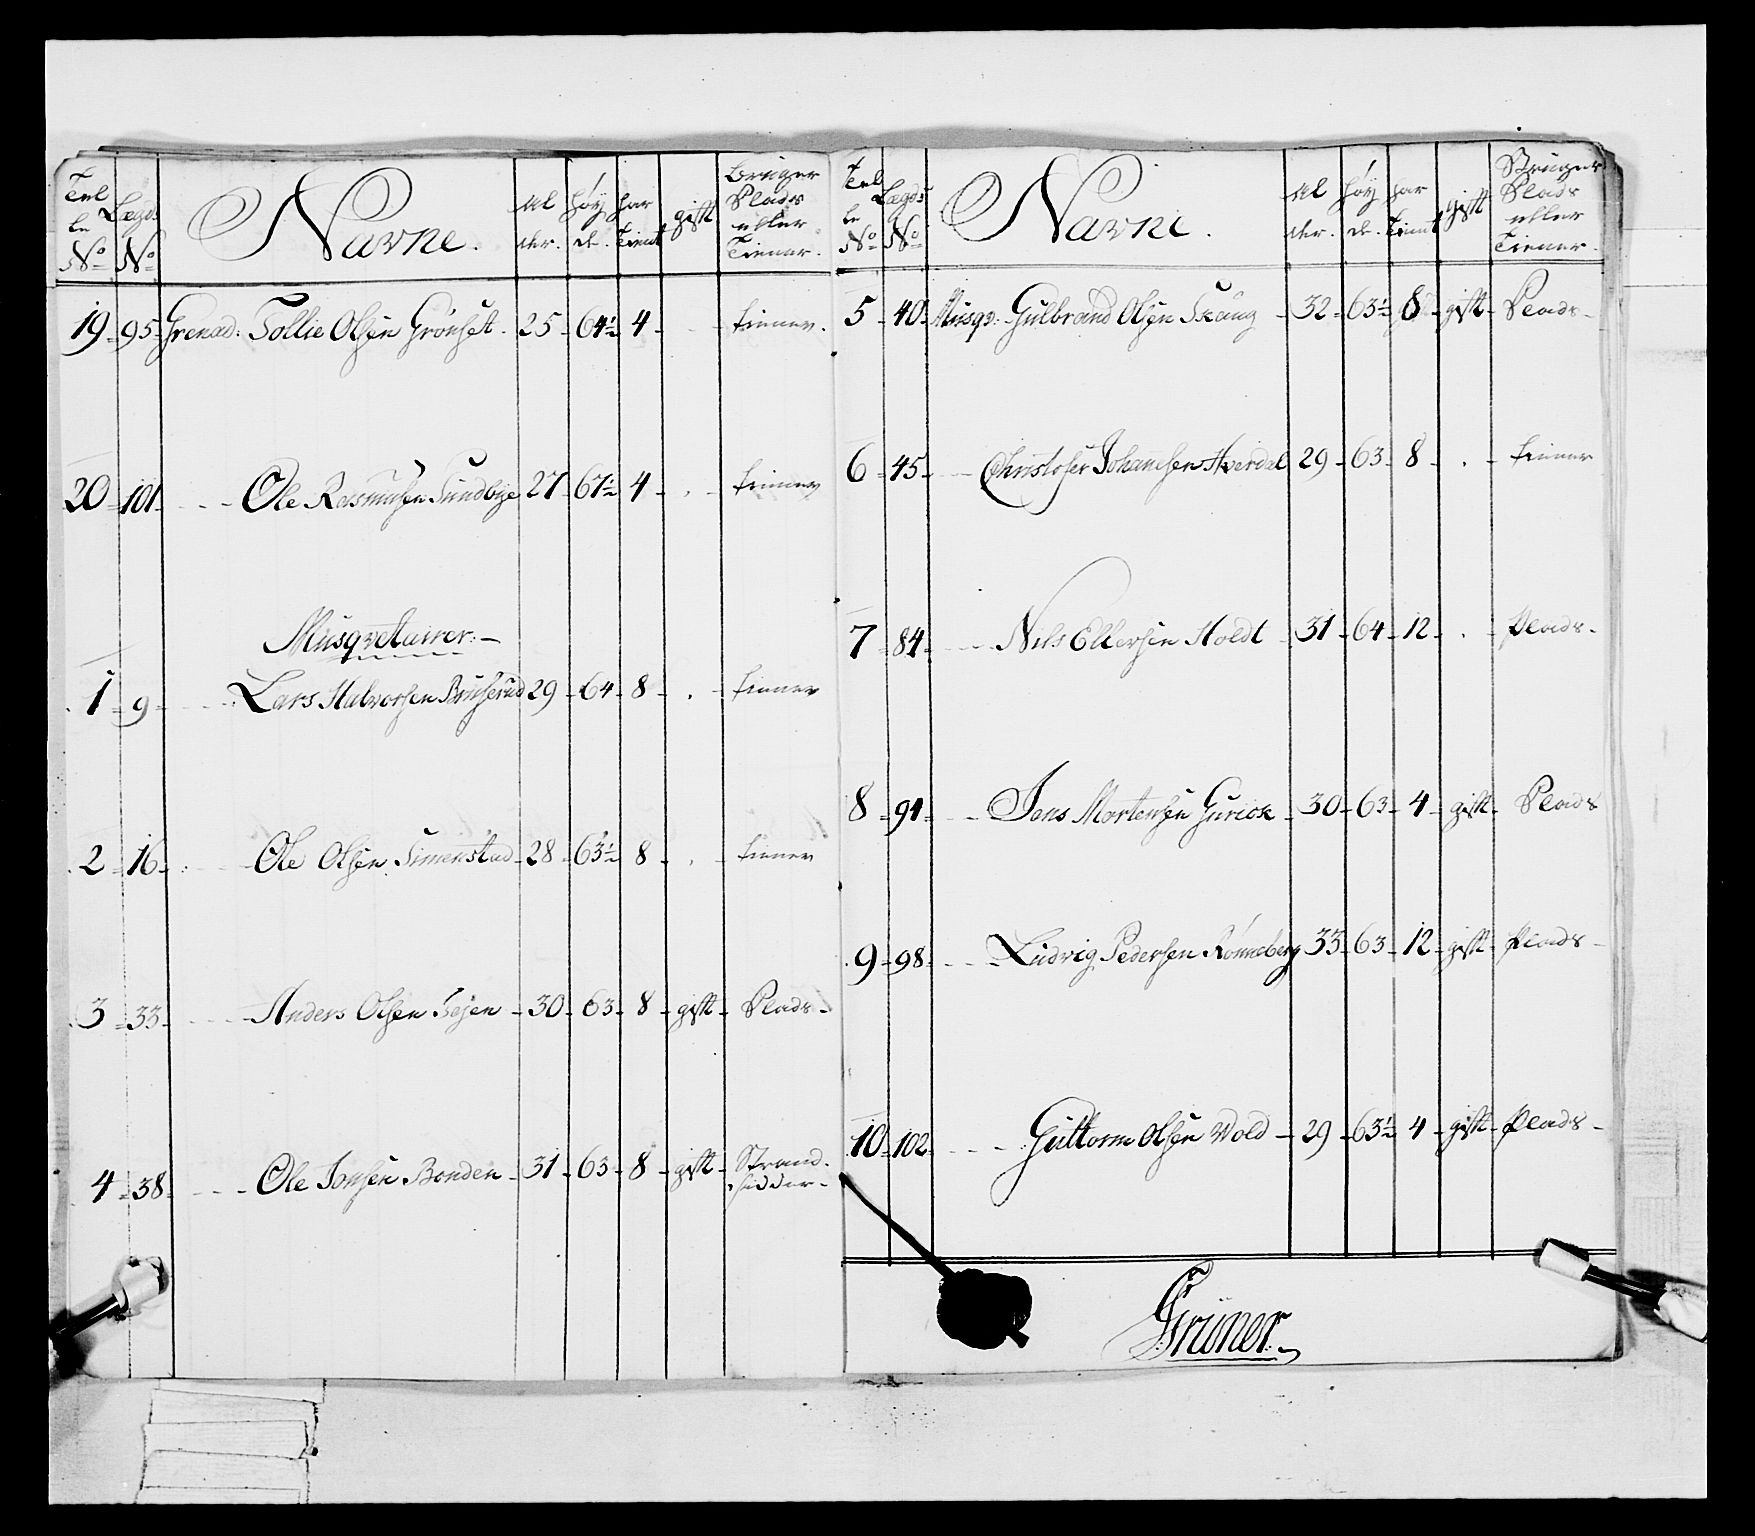 Tel
le
No
Lægds
No
Navne.
Al
der.
Høy
de.
har
tient
gift
Bruger
Plads
eller
Tiener.
19 - 95 - Grenad: Tollie Olsen Grönset - 25 - 64½ - 4 - - tienner.
20 - 101 - - - Ole Rasmusen Sundbye 27 - 67½ - 4 - . - tienner
Musqvetairer: -
1 - 9 - - - Lars Halvorsen Bruserud 29 - 64 - 8 - . - tienner
2 - 16 - - - Ole Olsen Simenstad - 28 - 63½ - 8 - . - tienner
3 - 33 - - - Anders Olsen - 30 - 63 - 8 - gift - Plads -
4 - 38 - - - Ole Jonsen Bonden - 31 - 63 - 8 - gift - Strand-
sidder -
Tel
le
No
Lægds
No
Navne.
Al
der.
Høy
de.
har
tient
gift
Bruger
Plads
eller
Tiener.
5 - 40 - Musqv: Gulbrand Olsen Skaug - 32 - 63½ - 8 - gift - Plads -
6 - 45 - - Christofer Johansen Hverdal 29 - 63 - 8 - . - tienner
7 - 84 - - - Nils Ellevsen Holdt - 31 - 64 - 12 - . - Plads -
8 - 94 - - Jens Mortensen - 30 - 63 - 4 - gift - Plads
9 - 98 - - - Ludvig Pedersen Rönneberg 33 - 63 - 12 - gift - Plads -
10 - 102 - - - Guttorm Olsen Wold - 29 - 63½ - 4 - gift - Plads -
Grüner